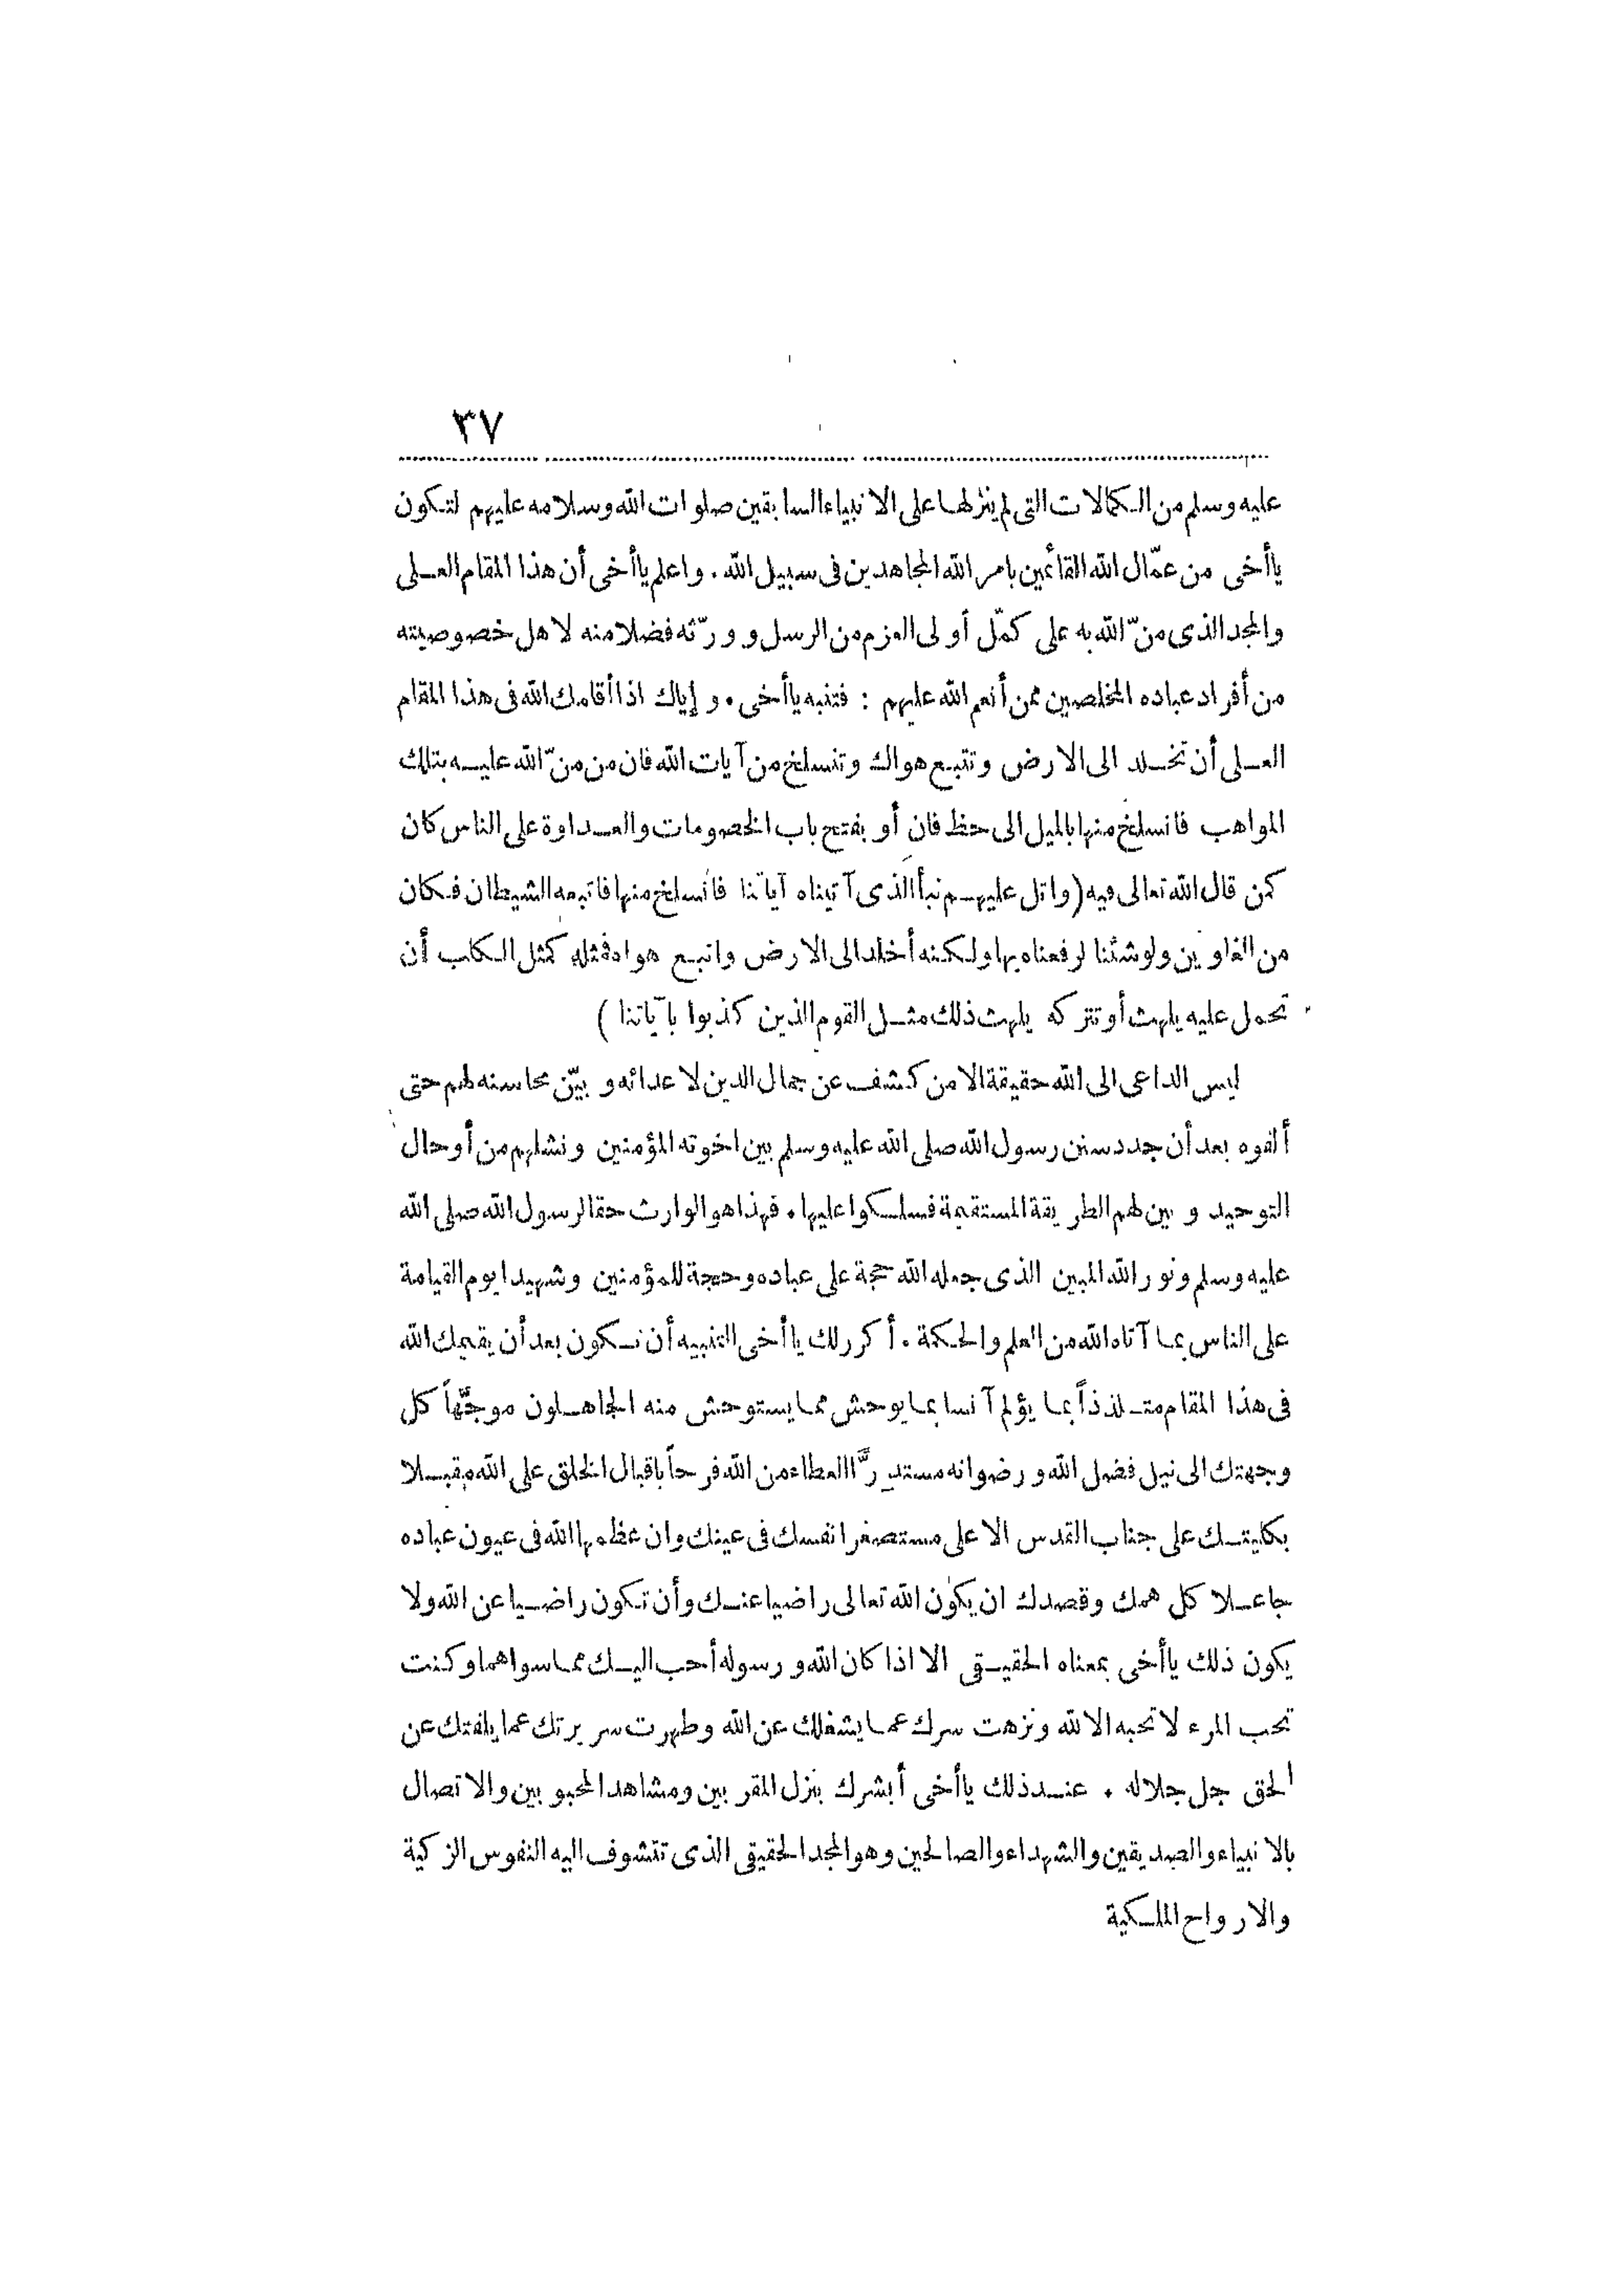 ٣٧
عليه وسلم من الكمالات التى لم ينزلها على الانبياء السابقين صلوات الله وسلامه عليهم لتكون
ياأخى من عمّال الله القائمين بامر الله المجاهدين فى سبيل الله . واعلم ياأخى أن هذا المقام العلى
والمجد الذى منّ الله به على كمّل أولى العزم من الرسل وورّثه فضلا منه لاهل خصوصيته
من أفراد عباده المخلصين ممن أنعم الله عليهم : فتنبه ياأخى . وإياك اذا أقامك الله فى هذا المقام
العلى أن تخلد الى الارض وتتبع هواك وتنسلخ من آيات الله فان من منّ الله عليه بتلك
المواهب فانسلخ منها بالميل الى حظ فان أو بفتح باب الخصومات والعداوة على الناس كان
كمن قال الله تعالى فيه (واتل عليهم نبأ الذى آتيناه آياتنا فانسلخ منها فاتبعه الشيطان فكان
من الغاوين ولو شئنا لرفعناه بها ولكنه أخلد الى الارض واتبع هواه فمثله كمثل الكلب أن
تحمل عليه يلهث أو تتركه يلهث ذلك مثل القوم الذين كذبوا بآياتنا )
ليس الداعى الى الله حقيقة الا من كشف عن جمال الدين لاعدائه وبيّن محاسنه لهم حتى
ألفوه بعد أن جدد سنن رسول الله صلى الله عليه وسلم بين اخوته المؤمنين ونشلهم من أوحال
التوحيد وبين لهم الطريقة المستقيمة فسلكوا عليها . فهذا هو الوارث حقا لرسول الله صلى الله
عليه وسلم ونور الله المبين الذى جعله الله حجة على عباده وحجة للمؤمنين وشهيدا يوم القيامة
على الناس بما آتاه الله من العلم والحكمة . أكرر لك ياأخى التنبيه أن تكون بعد أن يقيمك الله
فى هذا المقام متلذذاً بما يؤلم آنسا بما يوحش مما يستوحش منه الجاهلون موجّهاً كل
وجهتك الى نيل فضل الله ورضوانه مستدرًّا العطاء من الله فرحاً باقبال الخلق على الله مقبلا
بكليتك على جناب القدس الاعلى مستصغرا نفسك فى عينك وان عظمها الله فى عيون عباده
جاعلا كل همك وقصدك ان يكون الله تعالى راضيا عنك وأن تكون راضيا عن الله ولا
يكون ذلك ياأخى بمعناه الحقيقى الا اذا كان الله ورسوله أحب اليك مما سواهما وكنت
تحب المرء لا تحبه الا لله ونزهت سرك عما يشغلك عن الله وطهرت سريرتك عما يلفتك عن
الحق جل جلاله . عند ذلك ياأخى أبشرك بنزل المقربين ومشاهد المحبوبين والاتصال
بالانبياء والصديقين والشهداء والصالحين وهو المجد الحقيقى الذى تتشوف اليه النفوس الزكية
والارواح الملكية